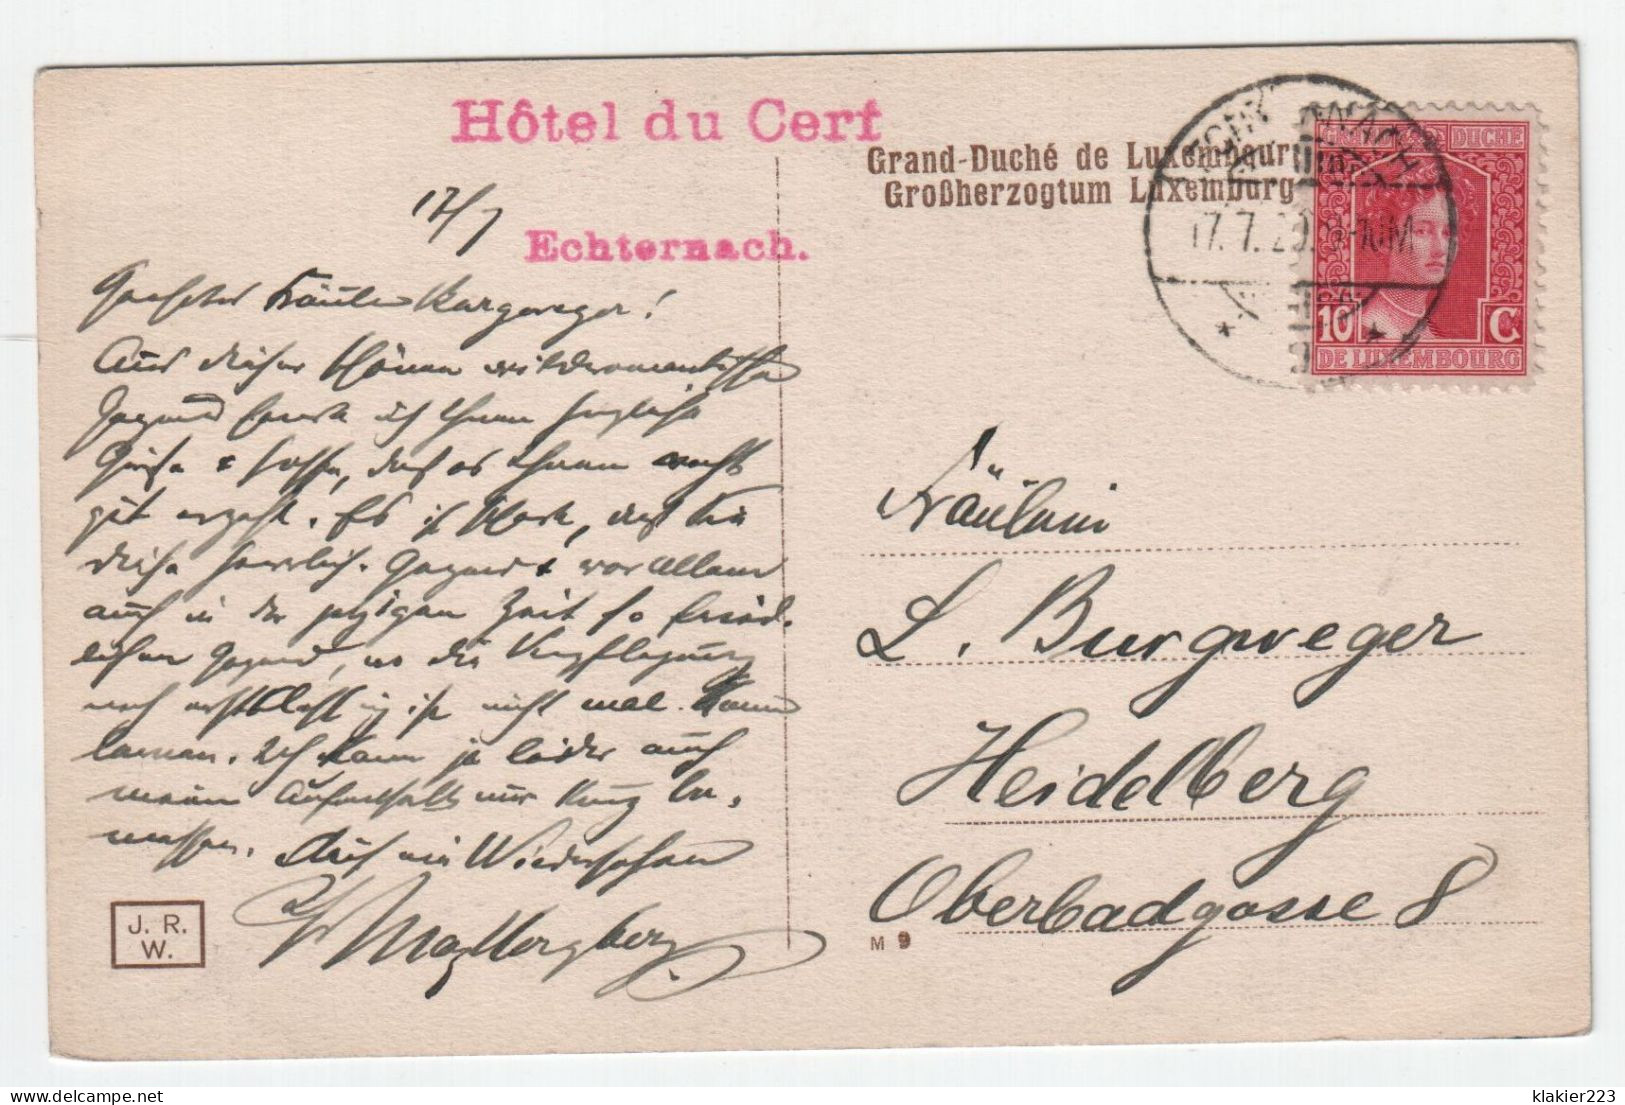 Hôtel du Cerf
Grand-Duché de Luxembourg
Großherzogtum Luxemburg
17/7
Echternach.
17.7.20.
GRAND DUCHÉ
10 C
DE LUXEMBOURG
Geehrtes Fräulein Burgweger!
Aus dieser schönen wildromantischen
Gegend sende ich Ihnen herzliche
Grüße & hoffe, daß es Ihnen recht
gut ergeht. Es ist schade, daß Sie
diese herrliche Gegend & vor allem
auch in der jetzigen Zeit so fried-
lichen Gegend, wo die Verpflegung
noch erstklassig ist nicht mal kennen
lernen. Ich kann ja leider auch
meinen Aufenthalt nur kurz be-
messen. Auf ein Wiedersehen
Fräulein
L. Burgweger
Heidelberg
Oberbadgasse 8
J. R.
W.
M 9
klakier223